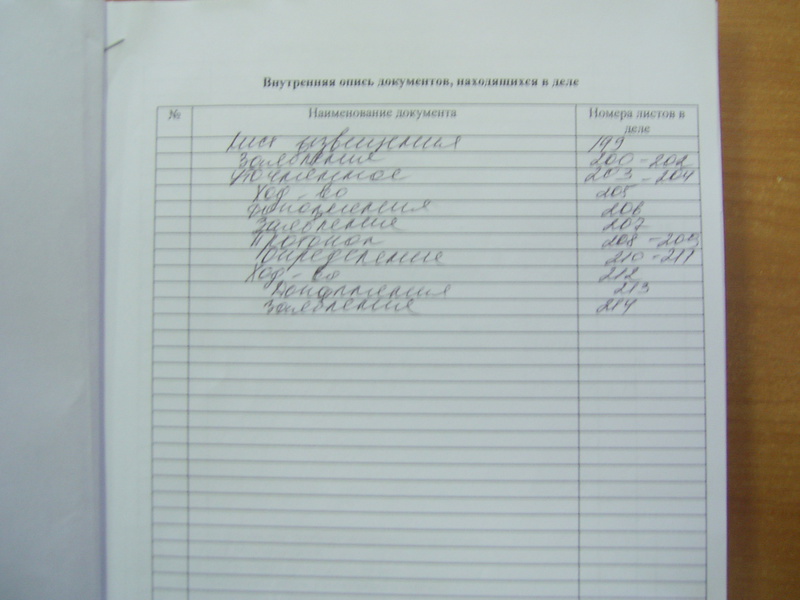 Внутренняя опись документов, находящихся в деле
№ Наименование документа Номера листов в деле
Лист извещения 199
Заявления 200-202
Уточненное 203-204
Ход-во 205
206
Заявление 207
Протокол 208-209
Определение 210-211
Ход-во 212
213
Заявление 214